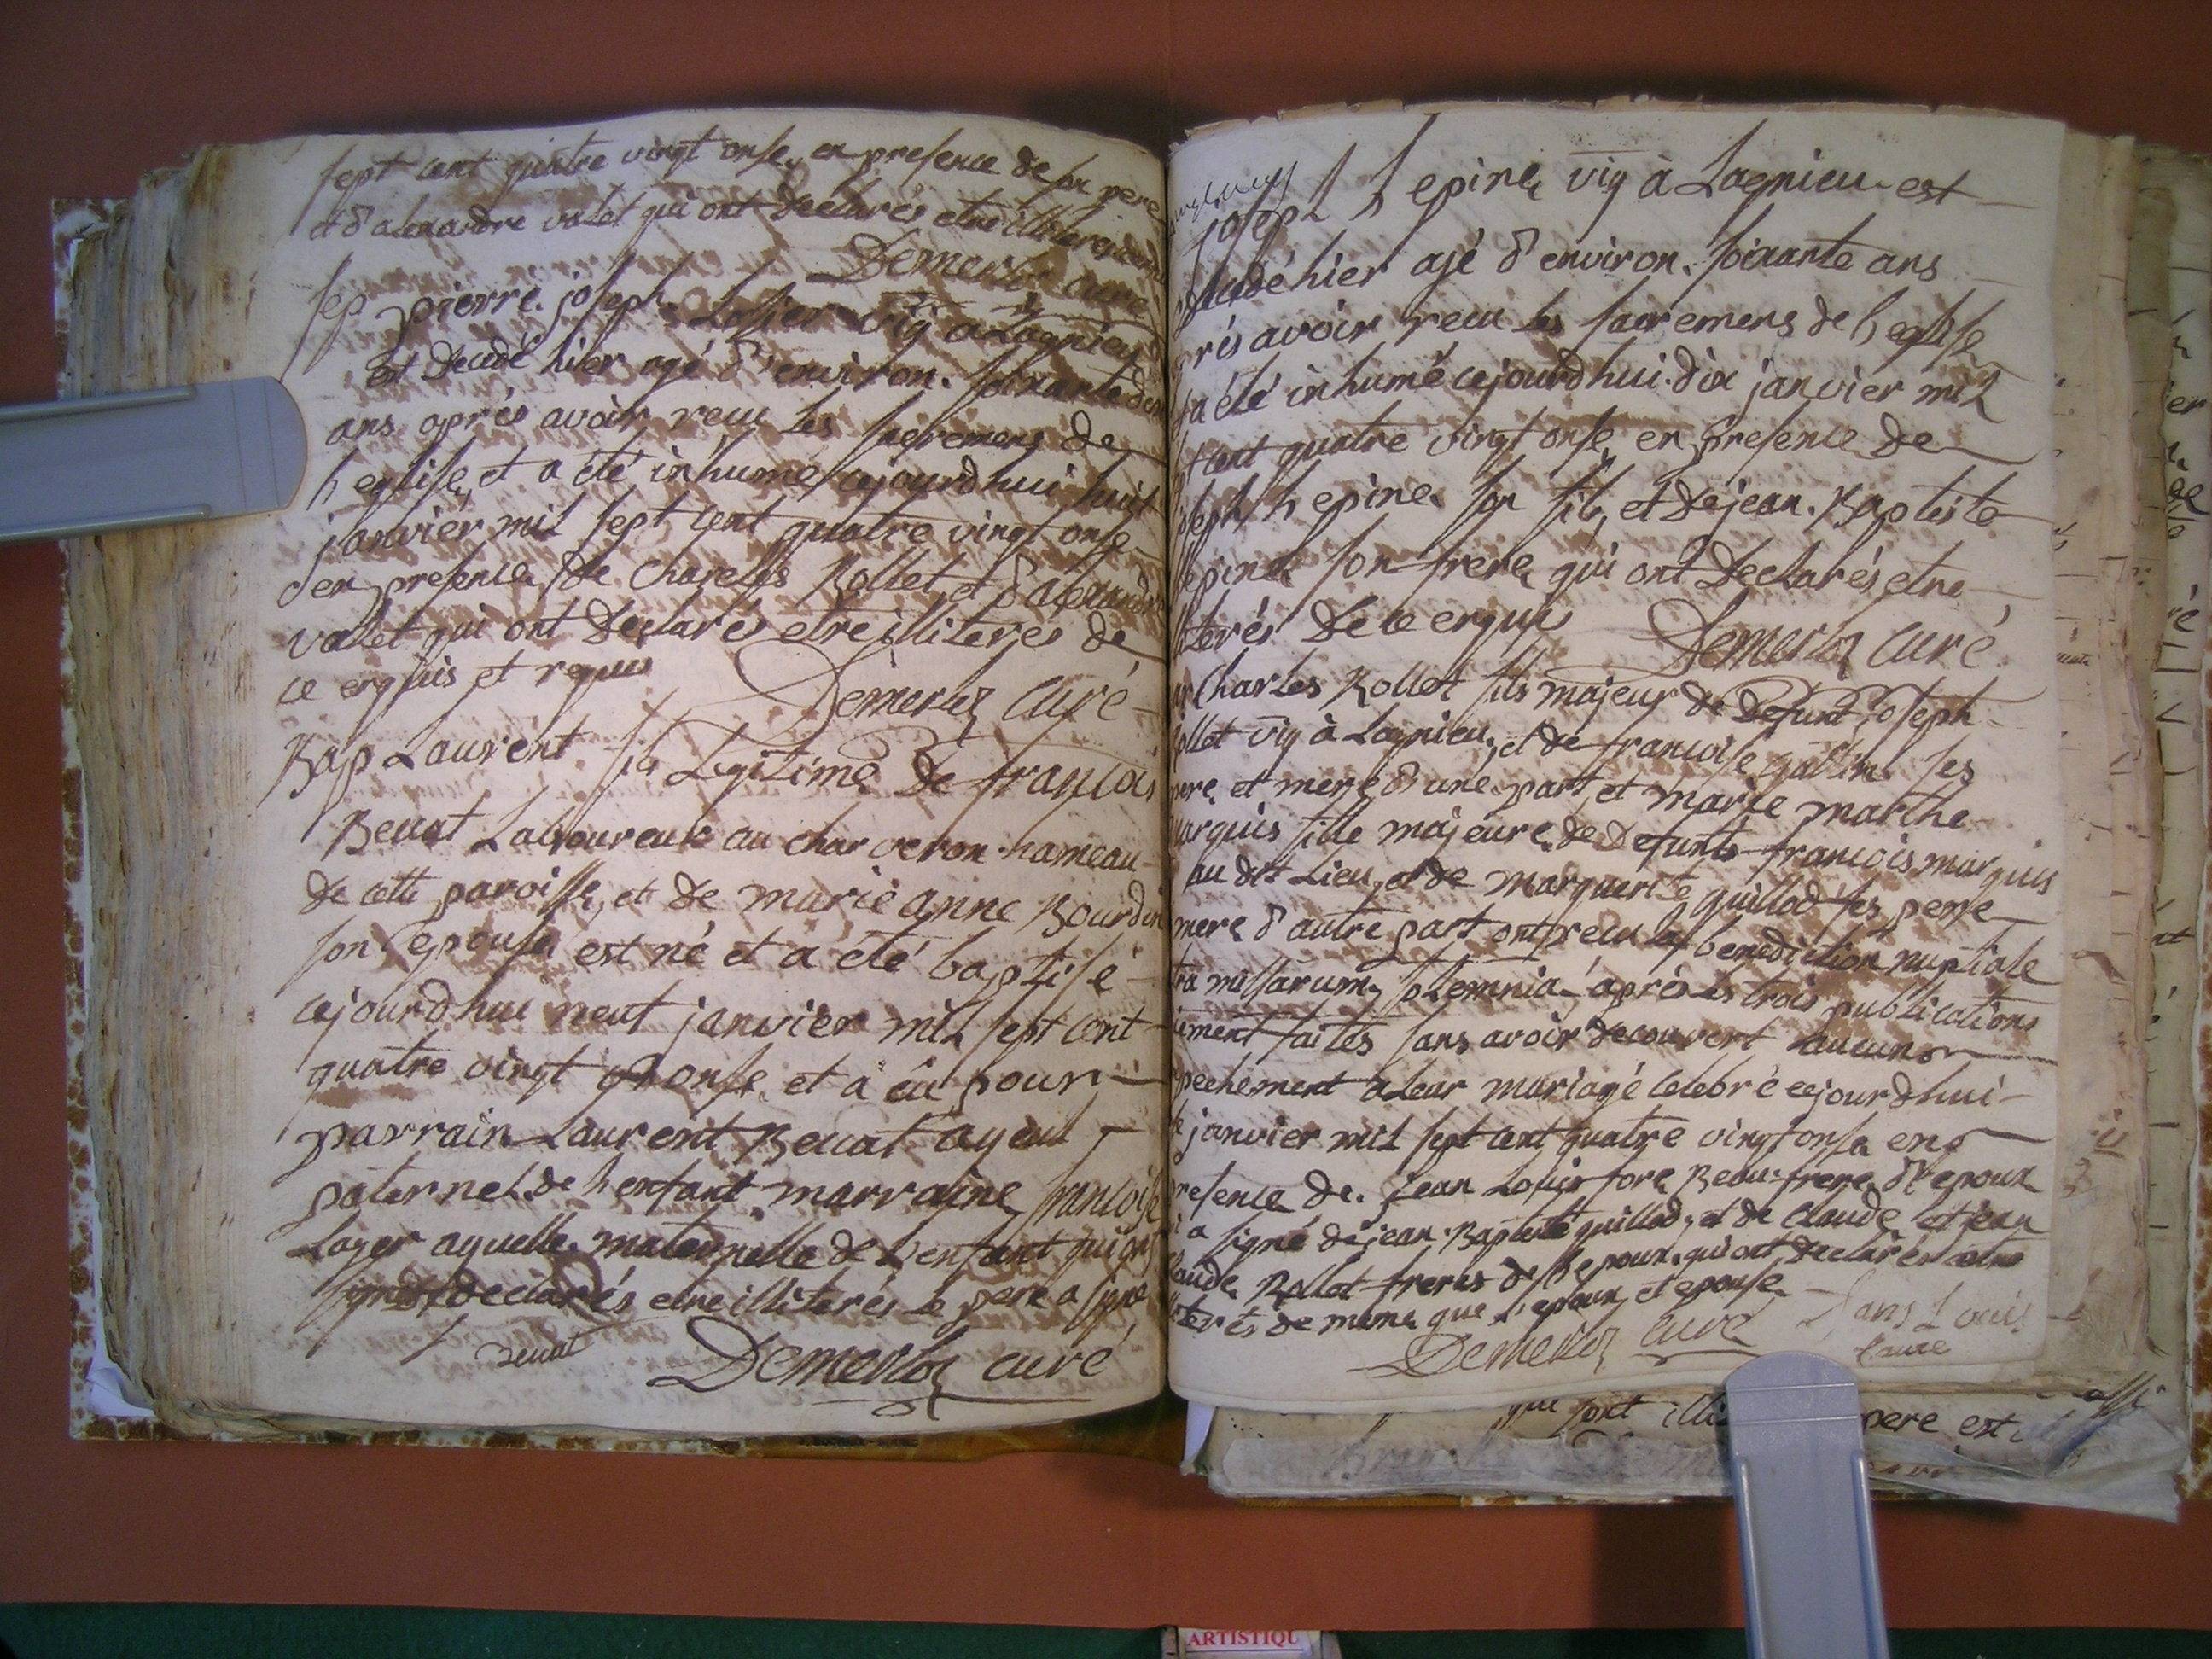 sept cent quatre vingt onse, en presence de son pere
et d'alexandre valet qui ont declarés etre illiterés
Demerloz curé
sep. pierre joseph Losier vig à Lagnieu
est decedé hier agé d'environ soixante
ans aprés avoir recu les sacremens de
l'eglise, et a été inhumé cejourdhui huit
janvier mil sept cent quatre vingt onse
en presence de Charles Rollet et d'alexandre
valet qui ont declarés etre illiterés de
ce enquis et requis
Demerloz curé
Bap Laurent fils Legitime de francois
Beuat Laboureur au charveron hameau
de cette paroisse, et de marie anne Bourdin
son epouse est né et a été baptisé
cejourdhui neuf janvier mil sept cent
quatre vingt onse et a eu pour
parrain Laurent Beuat ayeul
paternel de l'enfant marraine francoise
Loyer ayuelle maternelle de l'enfant qui ont
declarés etre illiterés le pere a signé
Beuat
Demerloz curé
joseph Lepine vig à Lagnieu est
decedé hier agé d'environ soixante ans
prés avoir recu les sacremens de l'eglise
a été inhumé cejourdhui dix janvier mil
cent quatre vingt onse en presence de
joseph Lepine son fils, et de jean Baptiste
Lepine son frere qui ont declarés etre
literés de ce enquis
Demerloz curé
Charles Rollet fils majeur de defunt joseph
ollet vig à Lagnieu, et de francoise ses
pere et mere d'une part, et marie marthe
marquis fille majeure de defunts francois marquis
au dit Lieu, et de marguerite guillod ses pere
mere d'autre part ont recu la benediction nuptiale
tra missarum solemnia aprés les trois publications
ement faites sans avoir decouvert aucun
pechement a leur mariage celebré cejourdhui
janvier mil sept cent quatre vingt onse en
resence de jean Louis fore Beau-frere de l'epoux
a signé de jean Baptiste guillod, et de Claude et jean
aude Rollet freres de l'epoux qui ont declarés etre
terés de meme que l'epoux et epouse
Demerloz curé
Jans Louis
faure
que sont pere est